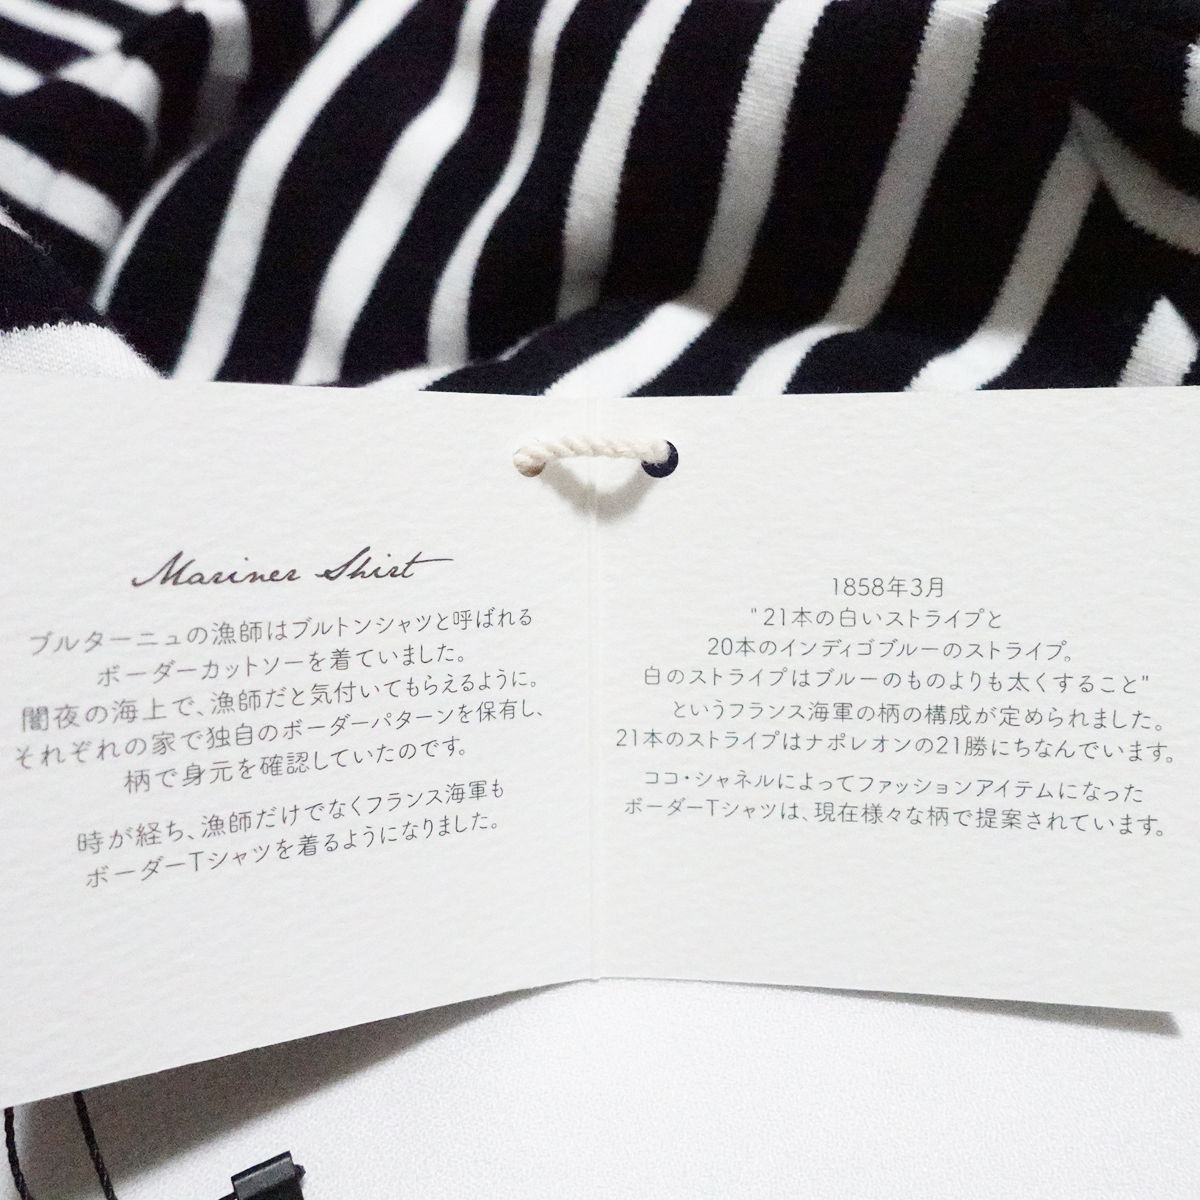 Mariner Shirt
ブルターニュの漁師はブルトンシャツと呼ばれる
ボーダーカットソーを着ていました。
闇夜の海上で、漁師だと気付いてもらえるように。
それぞれの家で独自のボーダーパターンを保有し、
柄で身元を確認していたのです。
時が経ち、漁師だけでなくフランス海軍も
ボーダーTシャツを着るようになりました。
1858年3月
"21本の白いストライプと
20本のインディゴブルーのストライプ。
白のストライプはブルーのものよりも太くすること"
というフランス海軍の柄の構成が定められました。
21本のストライプはナポレオンの21勝にちなんでいます。
ココ・シャネルによってファッションアイテムになった
ボーダーTシャツは、現在様々な柄で提案されています。